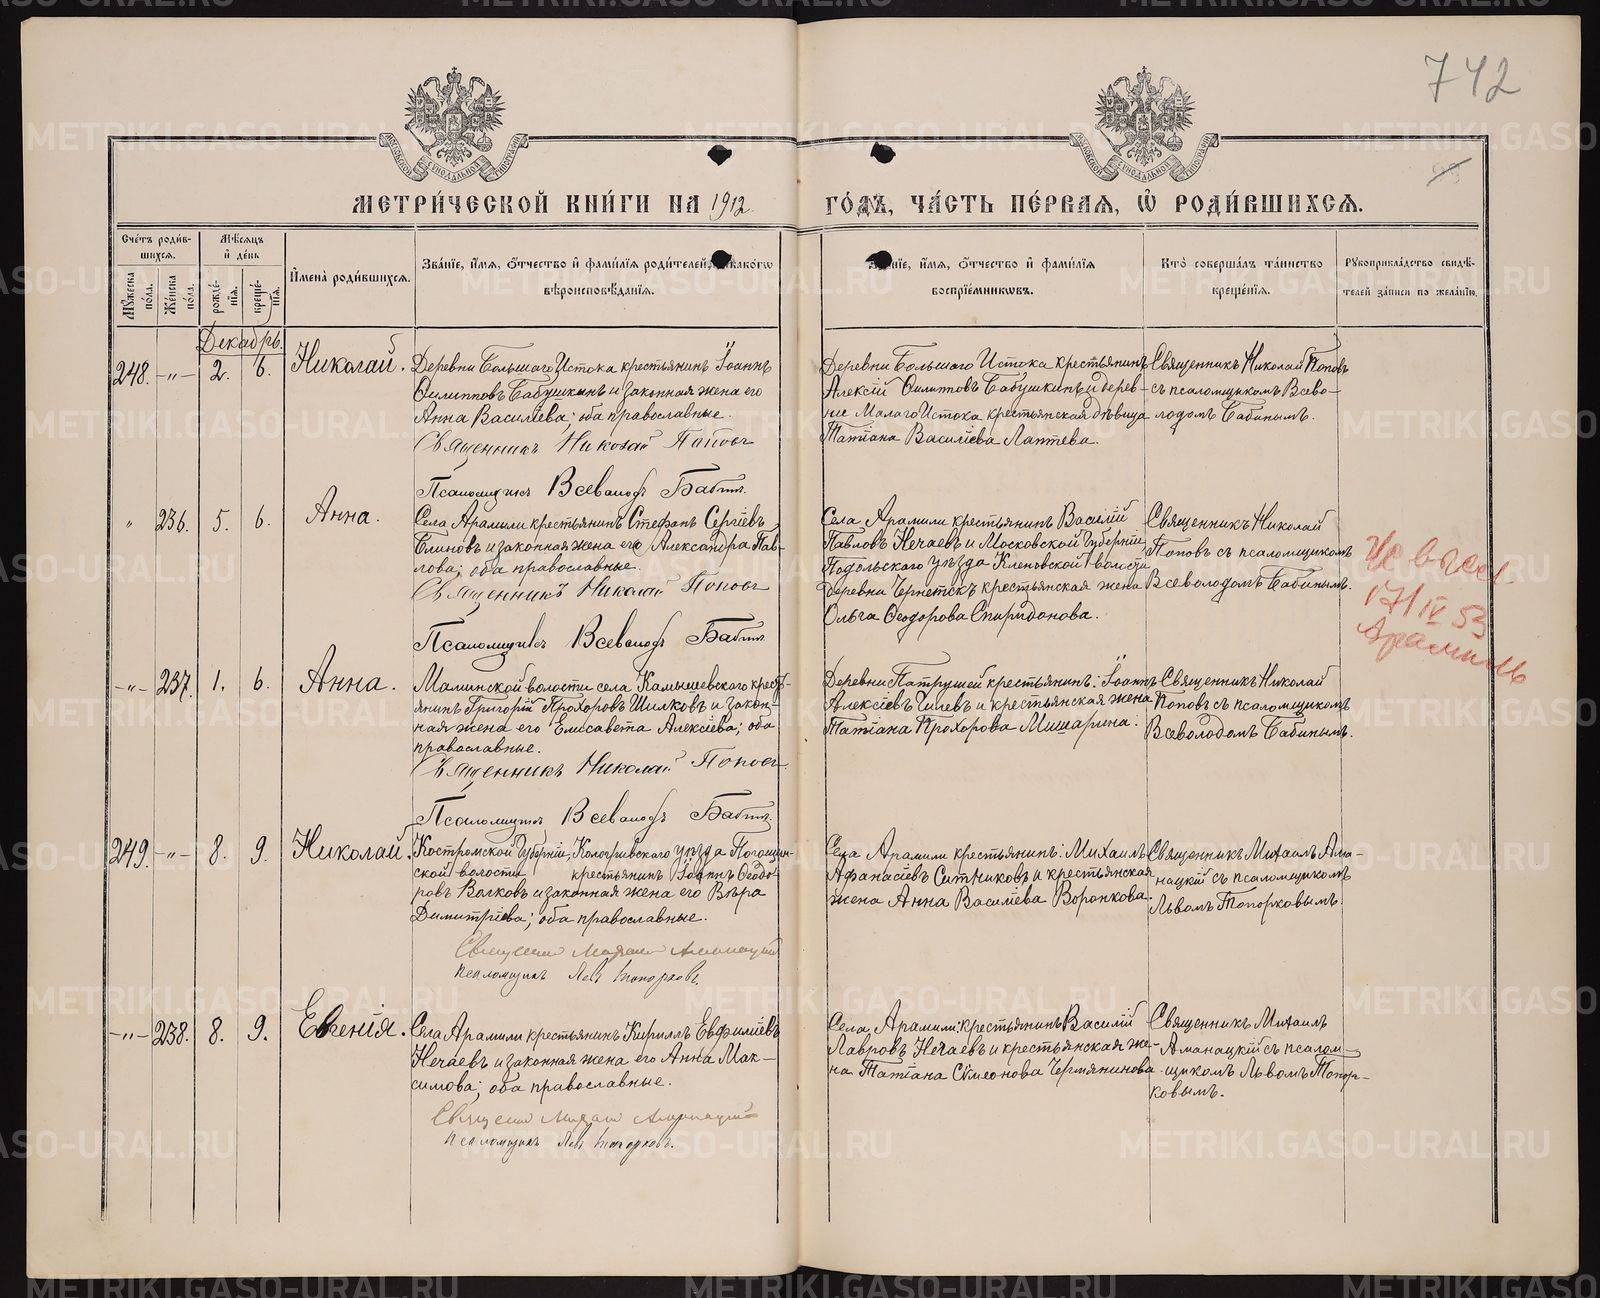 742
МЕТРИ́ЧЕСКОЙ КНИ́ГИ НА 1912 ГО́ДЪ, ЧА́СТЬ ПЕ́РВАЯ, Ѡ҆ РОДИ́ВШИХСЯ.
Сче́тъ роди́вшихся.
Мꙋ́жеска по́ла.
Же́нска по́ла.
Мѣ́сяцъ и҆ де́нь
рожде́нїя.
креще́нїя.
И҆мена̀ роди́вшихся.
Зва́нїе, и҆́мя, ѻ҆́тчество и҆ фами́лїя роди́телей,
вѣроисповѣ́данїя.
и҆́мя, ѻ҆́тчество и҆ фами́лїя
воспрїе́мниковъ.
Кто̀ соверша́лъ та́инство
креще́нїя.
Рꙋкоприкла́дство свидѣ́телей за́писи по жела́нїю.
Декабрь.
248. -"- 2. 6. Николай.
Деревни Большаго Истока крестьянинъ Іоаннъ
Филипповъ Бабушкинъ и законная жена его
Анна Василіева; оба православные.
Священникъ Николай Поповъ
Псаломщикъ Всеволодъ Бабинъ
Деревни Большаго Истока крестьянинъ
Алексій Филипповъ Бабушкинъ и дерев-
ни Малаго Истока крестьянская дѣвица
Татіана Василіева Лаптева.
Священникъ Николай Поповъ
съ псаломщикомъ Всево-
лодомъ Бабинымъ.
" 236. 5. 6. Анна.
Села Арамили крестьянинъ Стефанъ Сергіевъ
Блиновъ и законная жена его Александра Пав-
лова; оба православные.
Священникъ Николай Поповъ
Псаломщикъ Всеволодъ Бабинъ
Села Арамили крестьянинъ Василій
Павловъ Нечаевъ и Московской Губерніи
Подольскаго уѣзда Кленовской волости
деревни Чернецкъ крестьянская жена
Ольга Ѳеодорова Спиридонова.
Священникъ Николай
Поповъ съ псаломщикомъ
Всеволодомъ Бабинымъ.
17/IV 53
Арамиль
-"- 237. 1. 6. Анна.
Маминской волости села Камышевскаго кресть-
янинъ Григорій Прохоровъ Шилковъ и закон-
ная жена его Елисавета Алексіева; оба
православные.
Священникъ Николай Поповъ
Псаломщикъ Всеволодъ Бабинъ
Деревни Патрушей крестьянинъ: Іоаннъ
Алексіевъ Чилевъ и крестьянская жена
Татіана Прохорова Мишарина.
Священникъ Николай
Поповъ съ псаломщикомъ
Всеволодомъ Бабинымъ.
249. -"- 8. 9. Николай.
Костромской Губерніи, Кологривскаго уѣзда
ской волости крестьянинъ Іоаннъ Ѳеодо-
ровъ Волковъ и законная жена его Вѣра
Димитріева; оба православные.
Священникъ Михаилъ Аманацкій
псаломщикъ Левъ Топорковъ.
Села Арамили крестьянинъ: Михаилъ
Аѳанасіевъ Ситниковъ и крестьянская
жена Анна Василіева Воронкова.
Священникъ Михаилъ Ама-
нацкій съ псаломщикомъ
Львомъ Топорковымъ.
-"- 238. 8. 9. Евгенія.
Села Арамили крестьянинъ Кириллъ Евфиміевъ
Нечаевъ и законная жена его Анна Мак-
симова; оба православные.
Священникъ Михаилъ Аманацкій
псаломщикъ Левъ Топорковъ.
Села Арамили: крестьянинъ Василій
Лавровъ Нечаевъ и крестьянская же-
на Татіана Сѵмеонова Чермянинова
Священникъ Михаилъ
Аманацкій съ псалом-
щикомъ Львомъ Топор-
ковымъ.
METRIKI.GASO-URAL.RU